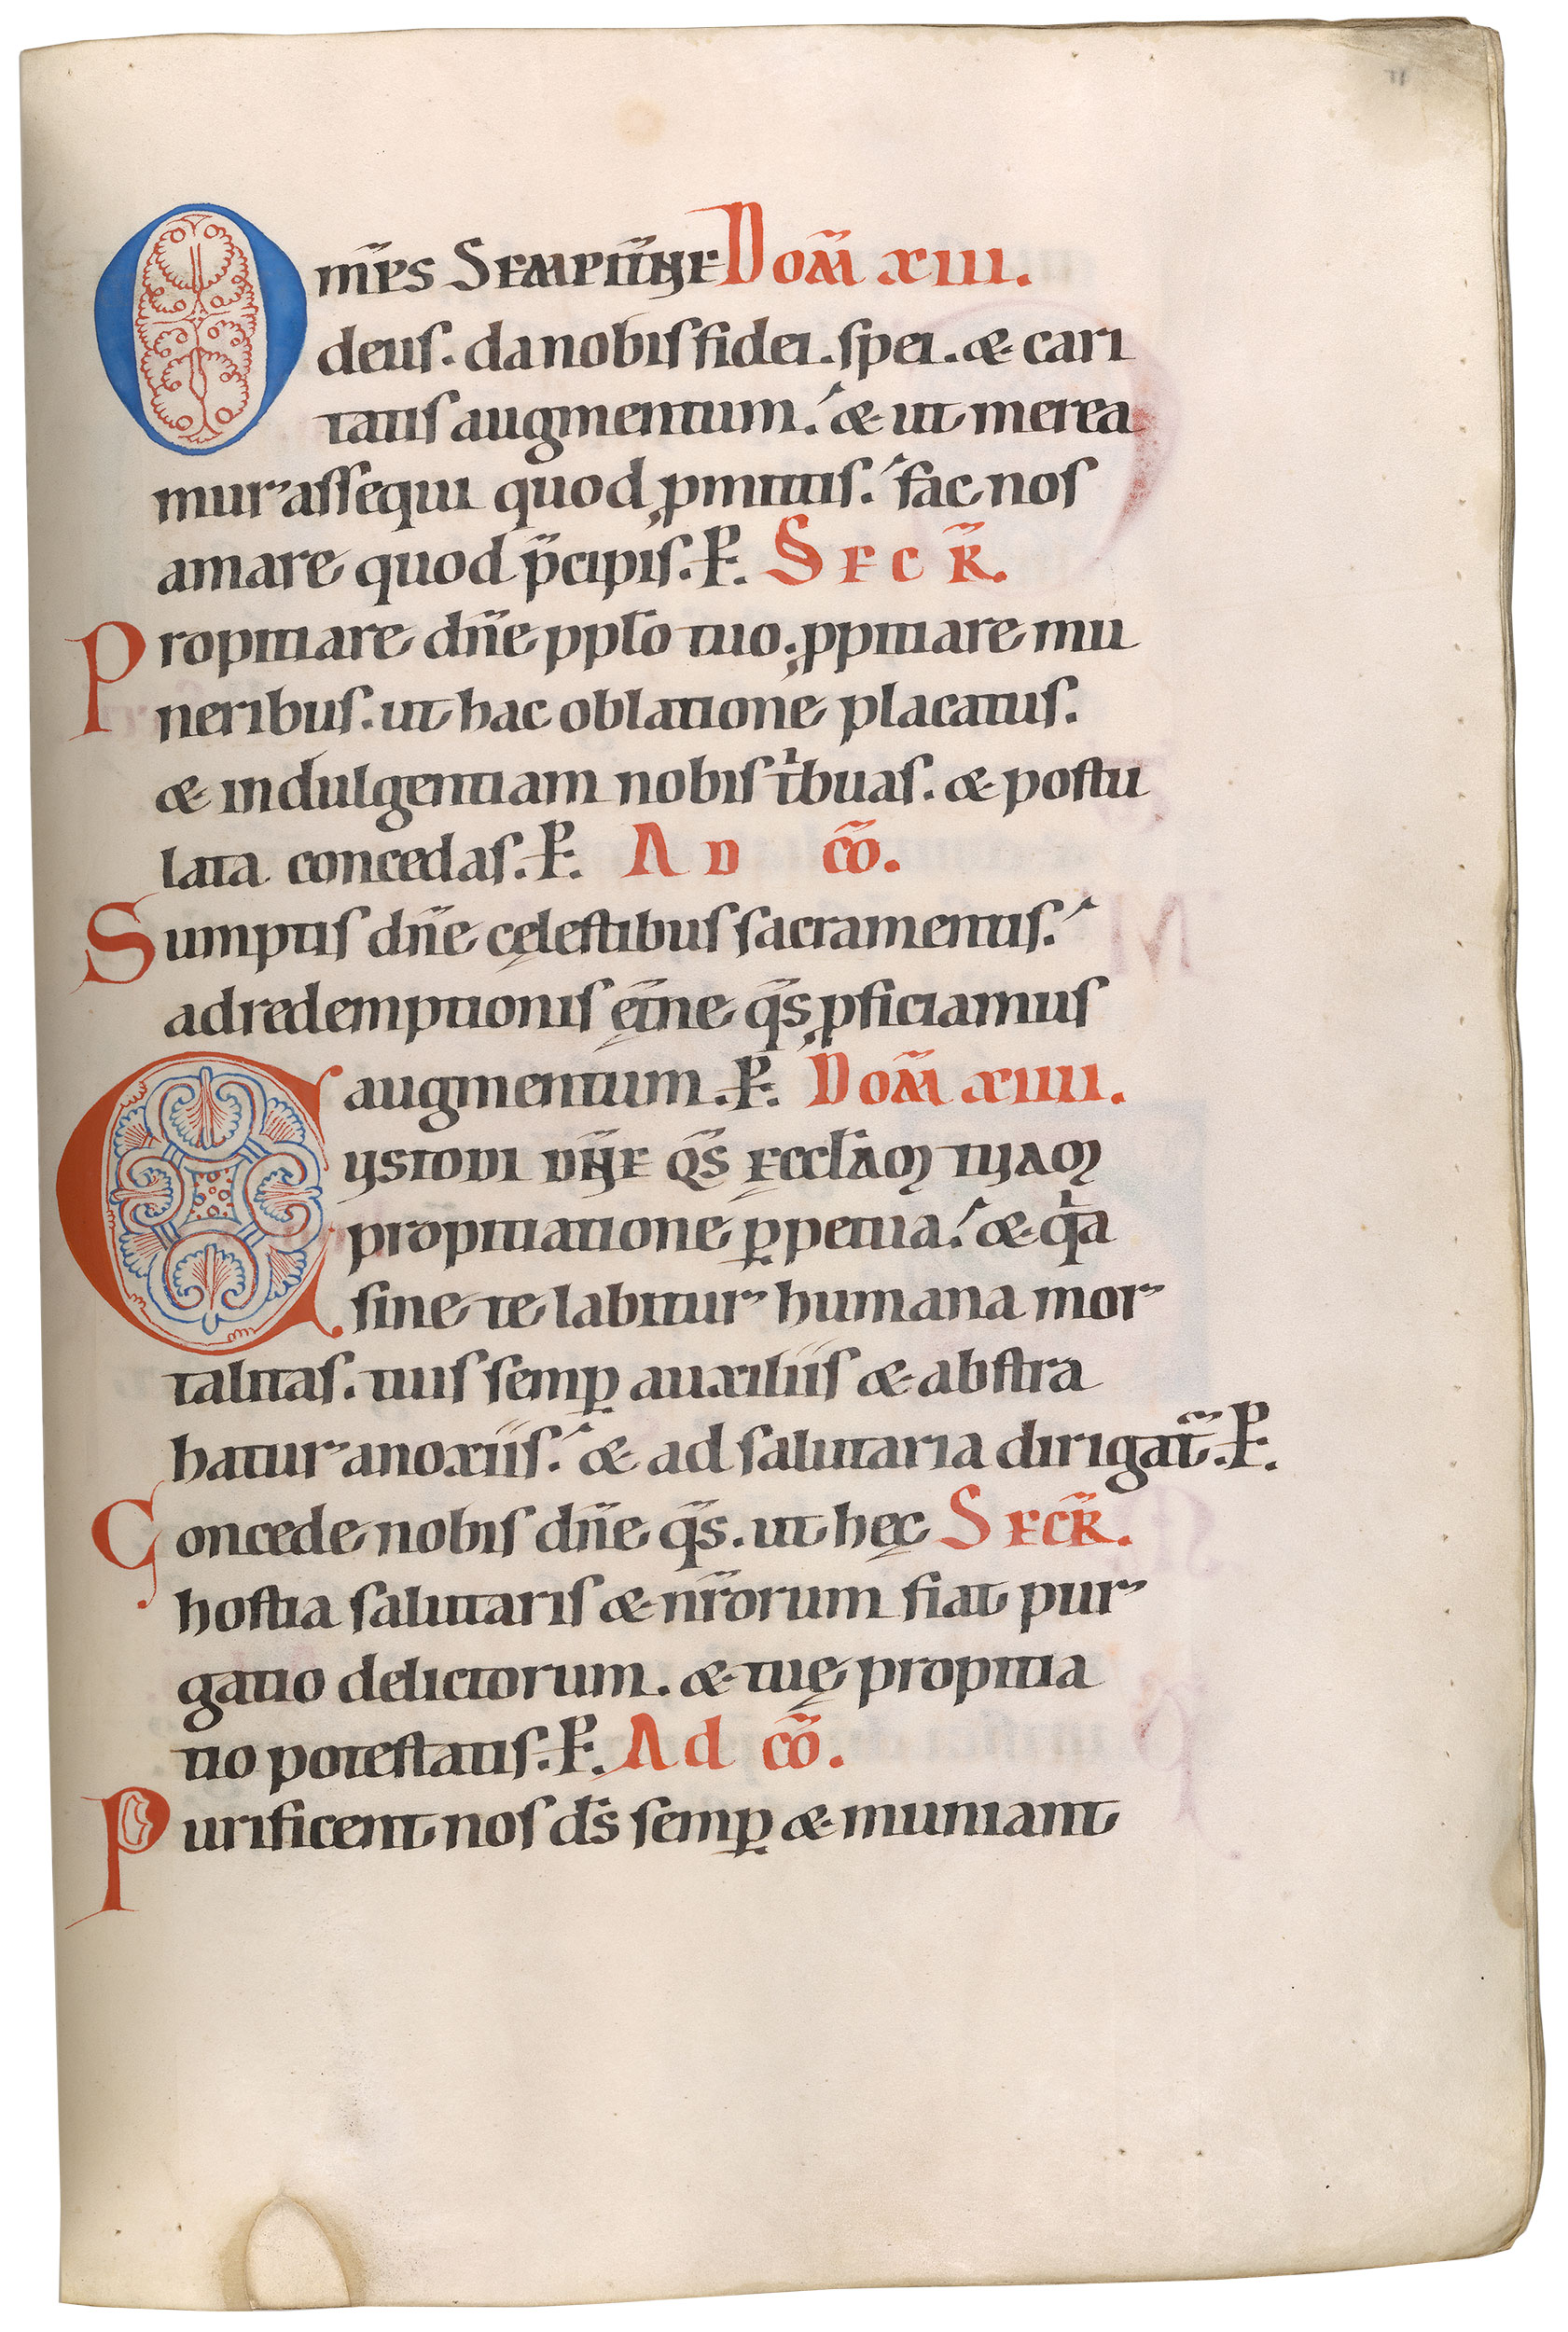 Om̄ps Sempit̄ne Dom̄ xiii.
deus. da nobis fidei. spei. & cari
tatis augmentum. & ut merea
mur assequi quod ꝓmittis. fac nos
amare quod p̄cipis. P. Secr̄.
Propitiare dn̄e pplo tuo. ꝓpitiare mu
neribus. ut hac oblatione placatus.
& indulgentiam nobis tⁱbuas. & postu
lata concedas. P. Ad cō.
Sumptis dn̄e cęlestibus sacramentis.
ad redemptionis ęt̄ne qs̄ ꝓficiamus
augmentum. P. Dom̄ xiiii.
Custodi dn̄e qs̄ ęccl̄am tuam
propitiatione ꝑpetua. & qⁱa
sine te labitur humana mor
talitas. tuis semꝑ auxiliis & abstra
hatur a noxiis. & ad salutaria dirigat̄. P.
Concede nobis dn̄e qs̄. ut hęc Secr̄.
hostia salutaris & nr̄orum fiat pur
gatio delictorum. & tuę propitia
tio potestatis. P. Ad cō.
Purificent nos ds̄ semꝑ & muniant